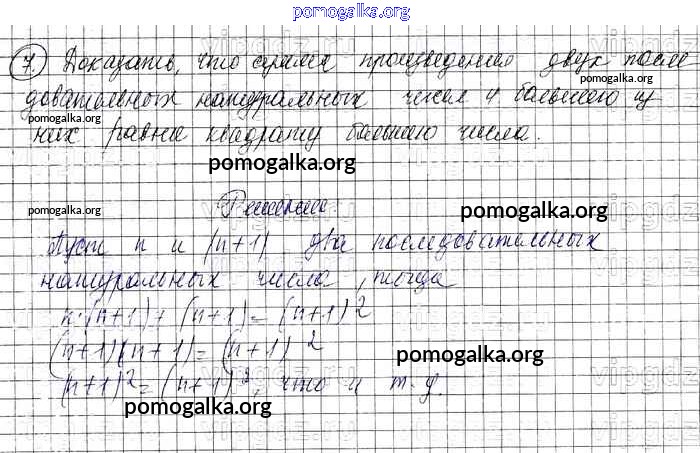 pomogalka.org
7. Доказать, что сумма произведения двух после
довательных натуральных чисел и большего из
них равна квадрату большего числа.
pomogalka.org
Решение.
pomogalka.org
pomogalka.org
Пусть n и (n+1) два последовательных
натуральных числа, тогда
n·(n+1)+(n+1)=(n+1)²
(n+1)(n+1)=(n+1)²
pomogalka.org
(n+1)²=(n+1)², что и т.д.
pomogalka.org